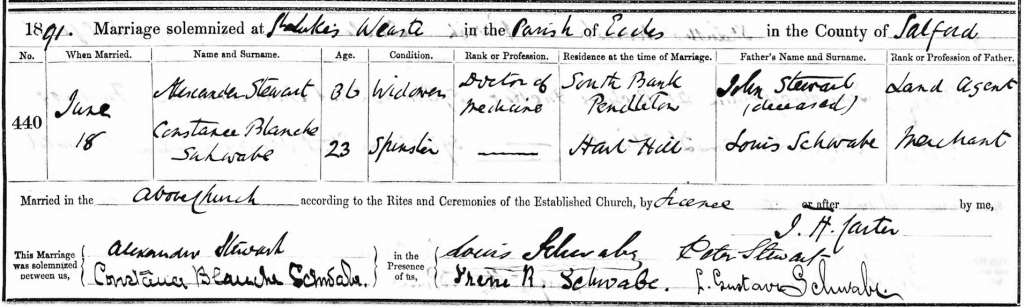 1891. Marriage solemnized at St Lukes Weaste in the Parish of Eccles in the County of Salford
No. When Married. Name and Surname. Age. Condition. Rank or Profession. Residence at the time of Marriage. Father's Name and Surname. Rank or Profession of Father.
440 June 18 Alexander Stewart 36 Widower Doctor of Medicine South Bank Pendleton John Stewart (deceased) Land Agent
Constance Blanche Schwabe 23 Spinster —— Hart Hill Louis Schwabe Merchant
Married in the above Church according to the Rites and Ceremonies of the Established Church, by Licence or after by me,
J. H. Carter
This Marriage was solemnized between us, Alexander Stewart in the Presence of us, Louis Schwabe Peter Stewart
Constance Blanche Schwabe. Irene R. Schwabe. L. Gustave Schwabe.